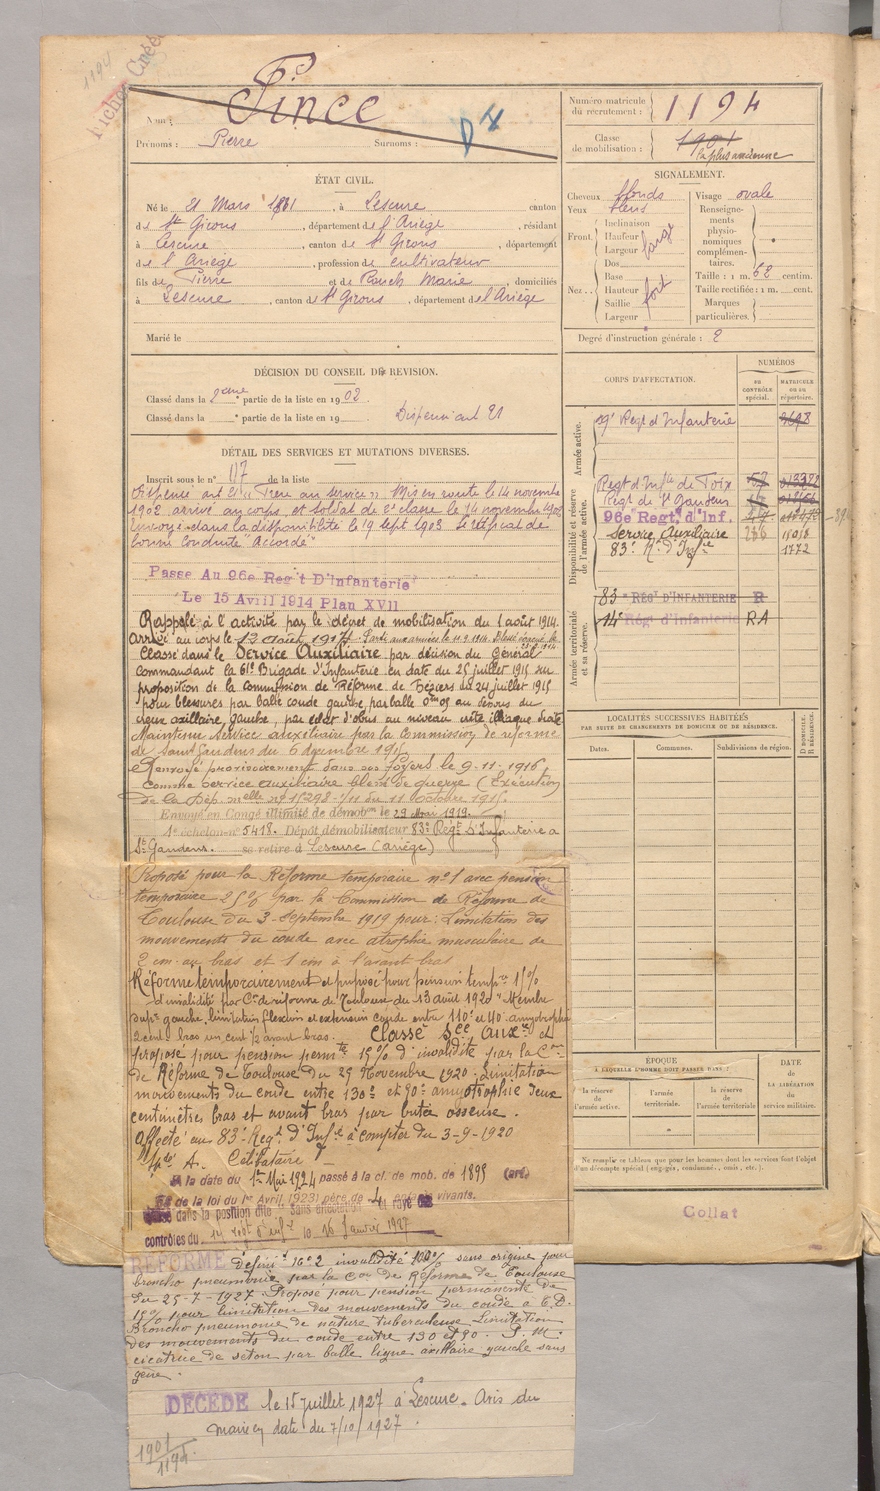 1194
Fiches Créée
Nom : Pince
Prénoms : Pierre Surnoms :
Numéro matricule du recrutement : 1194
Classe de mobilisation : 1901
la plus ancienne
ÉTAT CIVIL.
Né le 21 Mars 1881, à Lescure canton
de St Girons, département de l'Ariège, résidant
à Lescure, canton de St Girons, département
de l'Ariège, profession de cultivateur
fils de Pierre et de Rouch Marie, domiciliés
à Lescure, canton de St Girons, département de l'Ariège
Marié le
SIGNALEMENT.
Cheveux blonds
Yeux bleus
Front
Inclinaison
Hauteur
Largeur large
Nez
Dos
Base
Hauteur fort
Saillie
Largeur
Visage ovale
Renseignements physionomiques complémentaires.
Taille : 1 m. 62 centim.
Taille rectifiée : 1 m. cent.
Marques particulières.
Degré d'instruction générale : 2
DÉCISION DU CONSEIL DE REVISION.
Classé dans la 2ème partie de la liste en 1902
Classé dans la partie de la liste en 19 Dispensé art 21
DÉTAIL DES SERVICES ET MUTATIONS DIVERSES.
Inscrit sous le no 117 de la liste
Dispensé art 21 "Frère au service" Mis en route le 14 novembre
1902 arrivé au corps et soldat de 2e classe le 14 novembre 1902
Envoyé dans la disponibilité le 19 sept 1903 Certificat de
bonne conduite "Accordé"
Passé Au 96e Reg't D'Infanterie
Le 15 Avril 1914 Plan XVII
Rappelé à l'activité par le décret de mobilisation du 1 août 1914.
Arrivé au corps le 13 août 1914.
Classé dans le Service Auxiliaire par décision du Général
commandant la 61e Brigade d'Infanterie en date du 25 juillet 1915 sur
proposition de la commission de Réforme de Béziers du 24 juillet 1915
pour blessures par balle coude gauche, par balle au dessous du
creux axillaire gauche, par éclat d'obus au niveau crête illiaque droite
Maintenu Service auxiliaire par la Commission de réforme
de Saint Gaudens du 6 décembre 1915
Renvoyé provisoirement dans ses foyers le 9-11-1916
comme service auxiliaire blessé de guerre (Exécution
de la Dép. melle no 15298-1/11 du 11 octobre 1916.
Envoyé en Congé illimité de démobon le 29 Mai 1919.
1e échelon no 5418. Dépôt démobilisateur 83e Régt d'Infanterie à
St Gaudens. se retire à Lescure (Ariège)
Proposé pour la Réforme temporaire no 1 avec pension
temporaire 25% par la Commission de Réforme de
Toulouse du 3 Septembre 1919 pour : Limitation des
mouvements du coude avec atrophie musculaire de
2 cm au bras et 1 cm à l'avant bras
Réformé temporairement et proposé pour pension tempre 15%
d'invalidité par Con de réforme de Toulouse du 13 août 1920 "Membre
supr gauche, limitation flexion et extension coude entre 110 et 40. amyotrophie
2 cent. bras un cent. 1/2 avant-bras. Classé Sce Auxre et
proposé pour pension permte 15% d'invalidité par la Con
de Réforme de Toulouse du 29 Novembre 1920 : Limitation
mouvements du coude entre 130° et 90° amyotrophie deux
centimètres bras et avant bras par butée osseuse.
Affecté au 83e Régt d'Infie à compter du 3-9-1920
Célibataire
A la date du 1er Mai 1924 passé à la cl. de mob. de 1899 (art
de la loi du 1er Avril 1923) père de 4 enfants vivants.
dans la position dite "Sans affectation" et rayé des
contrôles du 14 Régt d'Infie le 16 Janvier 1927
RÉFORMÉ Définit no 2 invalidité 100% sans origine pour
broncho pneumonie par la Con de Réforme de Toulouse
du 25-7-1927. Proposé pour pension permanente de
15% pour limitation des mouvements du coude à
Broncho pneumonie de nature tuberculeuse. Limitation
des mouvements du coude entre 130 et 90.
cicatrice de seton par balle ligne axillaire gauche sans
gêne.
DÉCÉDÉ le 15 juillet 1927 à Lescure. Avis du
maire en date du 7/10/1927.
1901
1194
CORPS D'AFFECTATION.
NUMÉROS
au CONTRÔLE spécial.
MATRICULE ou au répertoire.
Armée active.
Disponibilité et réserve de l'armée active.
Armée territoriale et sa réserve.
Régt d'Infanterie 2698
Regt d'Infie de Foix 57
Regt de St Gaudens
96e Regt d'Inf.
Service Auxiliaire 286
83e R. d'Infie 1772
83e RÉGt D'INFANTERIE R
14e Rég. d'infanterie RA
LOCALITÉS SUCCESSIVES HABITÉES
PAR SUITE DE CHANGEMENTS DE DOMICILE OU DE RÉSIDENCE.
Dates. Communes. Subdivisions du région.
D DOMICILE. R RÉSIDENCE.
ÉPOQUE
À LAQUELLE L'HOMME DOIT PASSER DANS :
la réserve de l'armée active.
l'armée territoriale.
la réserve de l'armée territoriale
DATE de LA LIBÉRATION du service militaire.
Ne remplir ce tableau que pour les hommes dont les services font l'objet
d'un décompte spécial (engagés, condamnés, omis, etc.).
Collat